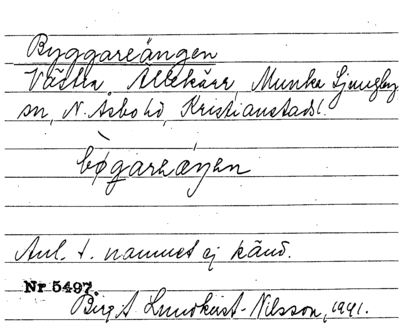 Byggareängen
Västra Allekärr, Munka Ljungby
sn, N. Åsbo hd, Kristianstads l.
bøgaræŋen
Anl. t. namnet ej känd.
Nr 5497.
Birgit Lundkvist-Nilsson, 1991.